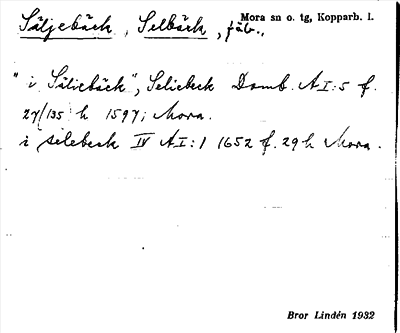 Mora sn o. tg, Kopparb. l.
Säljebäck, Selbäck, fäb.,
"i Säliebäck", Seliebeck Domb. A I:5 f.
27/135 h 1597; Mora.
i selebeck IV A I:1 1652 f. 29 h Mora.
Bror Lindén 1932